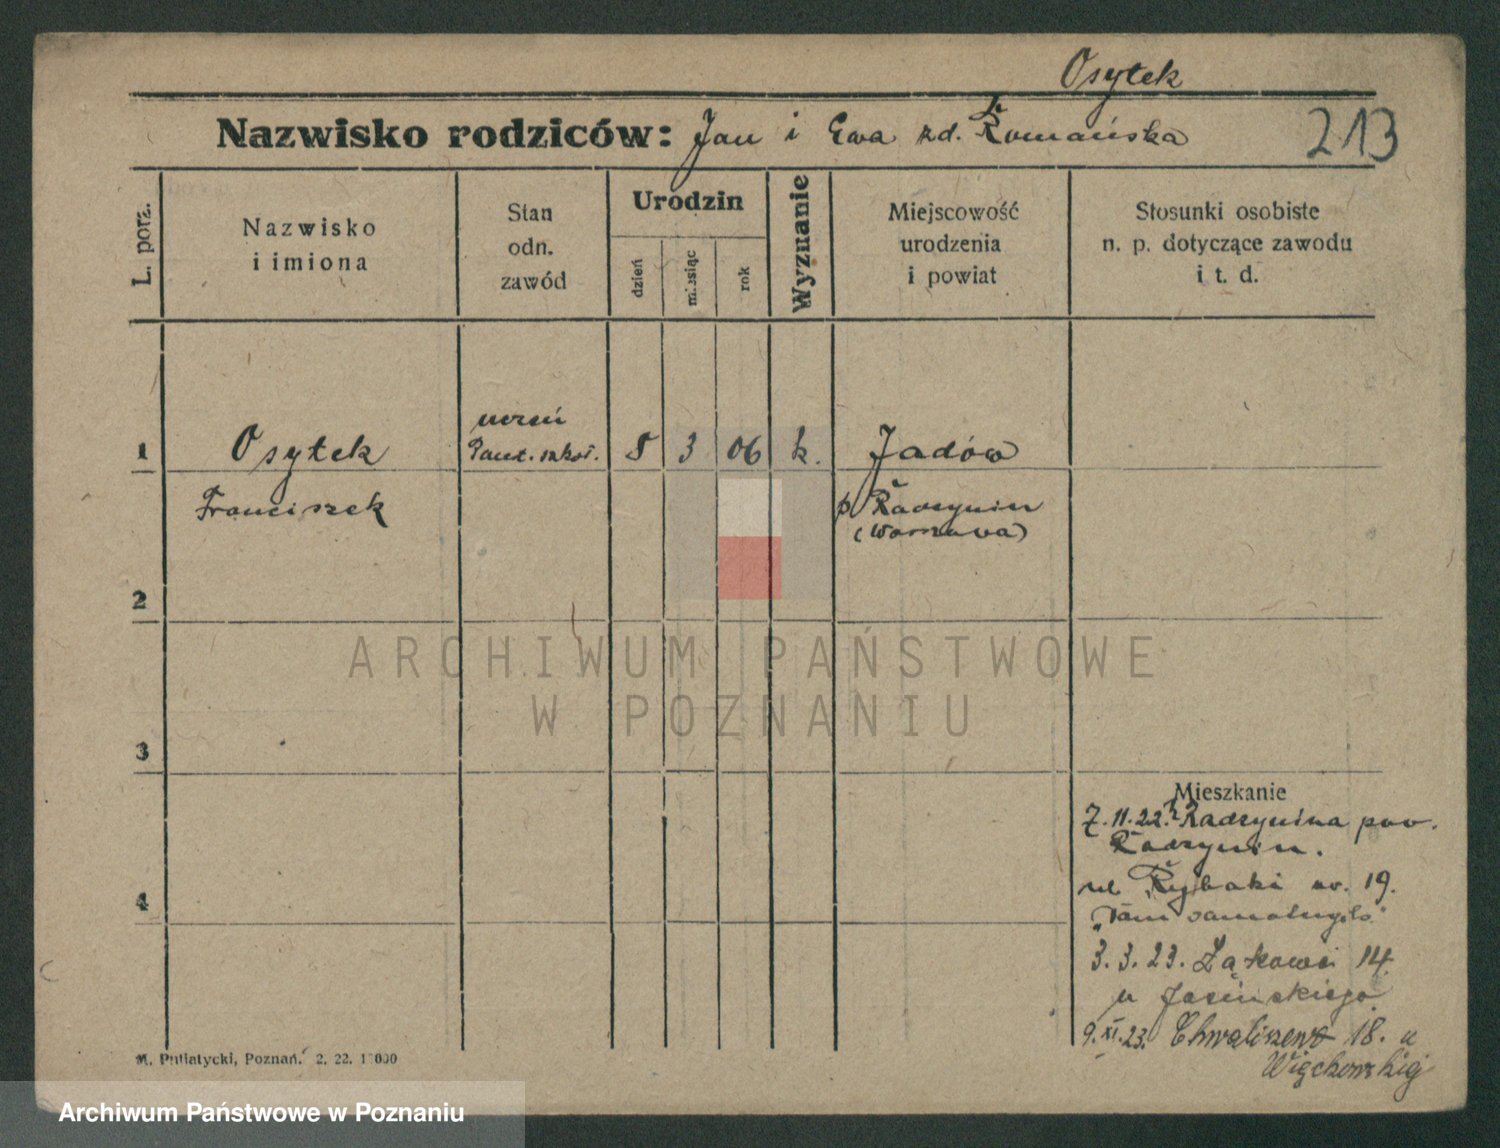 Osytek
Nazwisko rodziców: Jan i Ewa zd. Romańska
213
L. porz.
Nazwisko
i imiona
Stan
odn.
zawód
Urodzin
dzień
miesiąc
rok
Wyznanie
Miejscowość
urodzenia
i powiat
Stosunki osobiste
n. p. dotyczące zawodu
i t. d.
1
Osytek
Franciszek
uczeń
Państ. szkoł.
5
3
06
k.
Jadów
p Radzymin
(Warszawa)
2
3
4
Mieszkanie
7.11.22. z Radzymina pow.
Radzymin.
ul. Rybaki nr. 19.
3.3.23. Łąkowa 14
u Jasińskiego
9.XI.23. Chwaliszewo 18. u
Więckowskiej
M. Putiatycki, Poznań. 2. 22. 1 000
ARCHIWUM PAŃSTWOWE
W POZNANIU
Archiwum Państwowe w Poznaniu